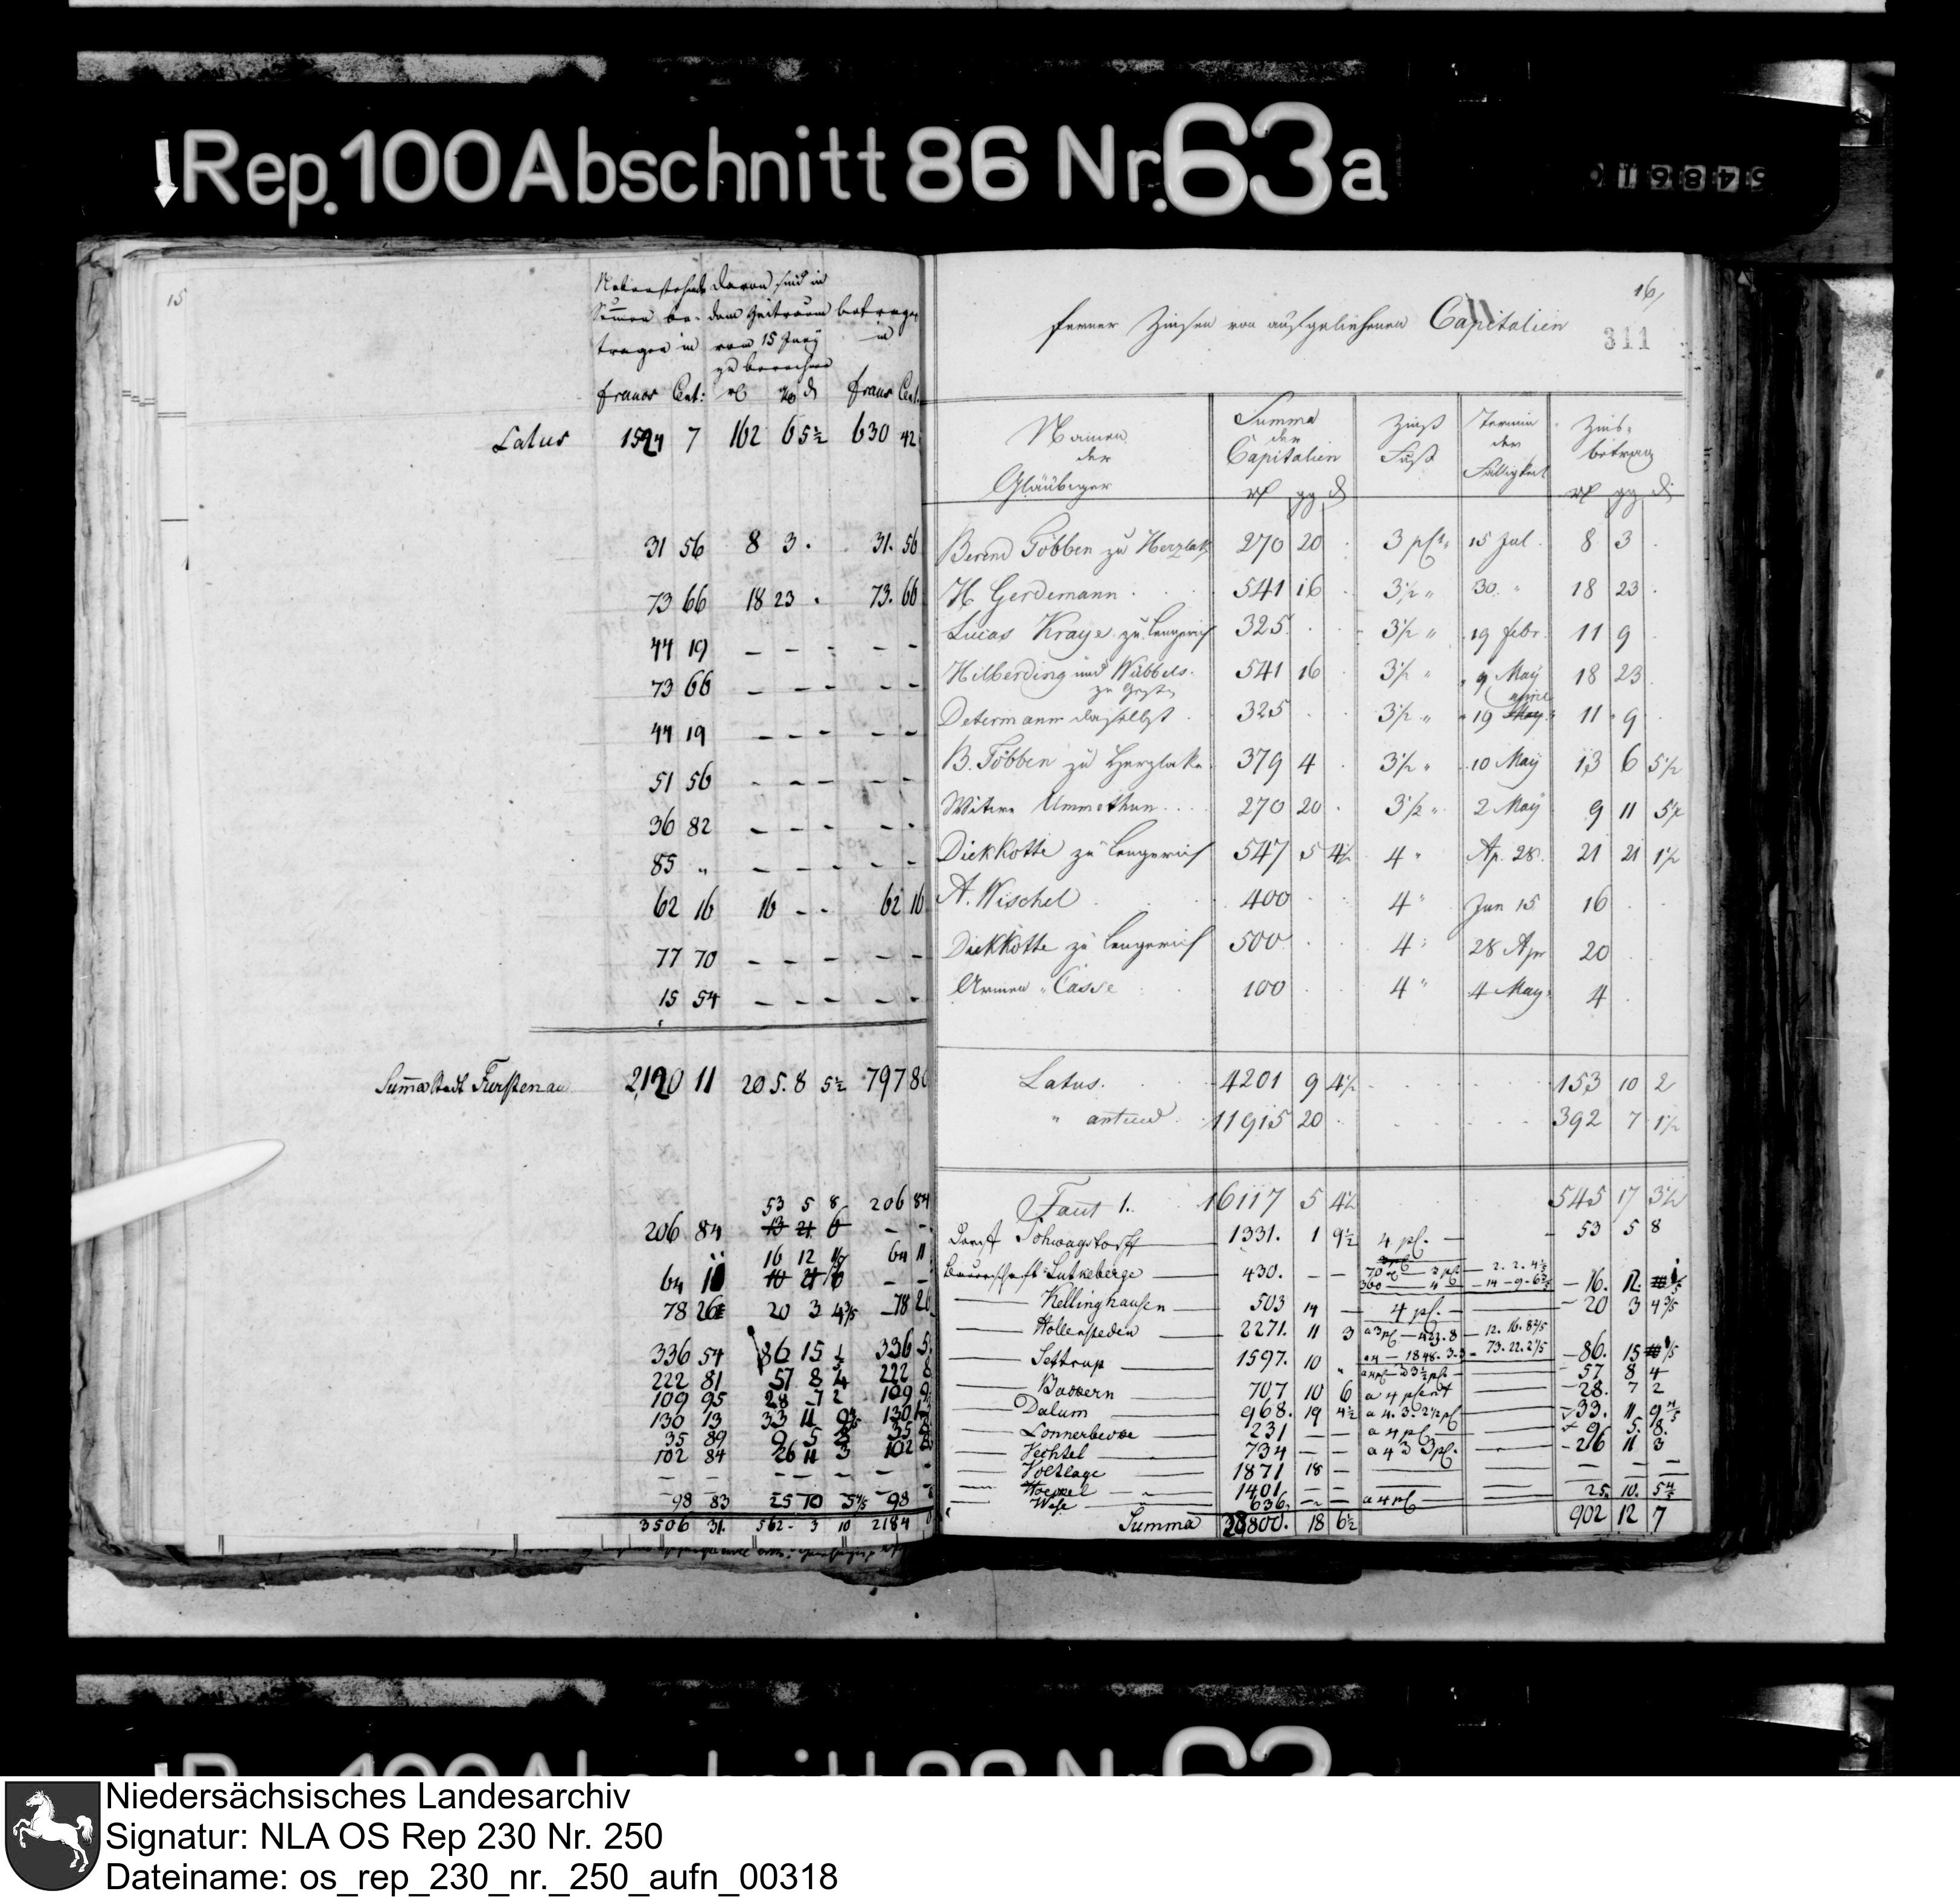 Rep. 100 Abschnitt 86 Nr. 63a
15
Nebenstehende davon sind in
Summen be- dem Zeitraum betragen
tragen in vom 15 Juny in
zu berechnen
francs Cent: rth gg d francs Cent.
Latus 1524 7 162 6 5½ 630 42
31 56 8 3 . 31. 56
73 66 18 23 . 73. 66
44 19 – – – – –
73 66 – – – – –
44 19 – – – – –
51 56 – – – – –
36 82 – – – – –
85 „ – – – – –
62 16 16 – – 62 16
77 70 – – – – –
15 54 – – – – –
Summa Stadt Furstenau 2120 11 205. 8 5½ 797 80
53 5 8 206 84
206 84 13 21 6 – –
16 12 64 11
64 11 – –
78 26 20 3 4⅗ 78 26
336 54 86 15 336 5
222 81 57 8 4 222 8
109 95 28 7 2 109 9
130 13 33 11 130 1
35 89 9 5 8 35 8
102 84 26 11 3 102 8
– – – – – – –
98 83 25 10 5⅘ 98
3506 31. 562 – 3 10 2184
16,
311
ferner Zinsen von ausgeliehenen Capitalien
Namen der Gläubiger
Summa der Capitalien
Zins Fuß
Termin der Fälligkeit
Zins-betrag
rth gg d rth gg d
Bernd Többen zu Herzlak 270 20 . 3 pCt. 15 Jul. 8 3 .
H. Gerdemann 541 16 . 3½ „ 30. „ 18 23 .
Lucas Kraye zu Lengerich 325 . . 3½ „ 19 febr. 11 9 .
Hilberding und Wübbels 541 16 . 3½ „ 9 May 18 23 .
Determann daselbst 325 . . 3½ „ 19 May 11 9 .
B. Többen zu Herzlake 379 4 . 3½ „ 10 May 13 6 5½
Witwe Ummethun 270 20 . 3½ „ 2 May 9 11 5½
Diekkotte zu Lengerich 547 5 4½ 4 „ Ap. 28. 21 21 1½
A. Wischel 400 . . 4 „ Jun 15 16 . .
Diekkotte zu Lengerich 500 . . 4 „ 28 Apr 20 . .
Armen Casse 100 . . 4 „ 4 May 4 .
Latus. 4201 9 4½ 153 10 2
„ anteced. 11915 20 . 392 7 1½
Facit 1. 16117 5 4½ 545 17 3½
Dorff Schwagstorff 1331. 1 9½ 4 pC. 53 5 8
Bauerschaft Lutkeberge 430. – – 16. 12.
Kellinghausen 503 14 – 4 pC. 20 3 4⅗
Hollensteden 2271. 11 3 86. 15
Settrup 1597. 10 „ 57 8 4
Bassern 707 10 6 a 4 psent 28. 7 2
Dalum 968. 19 4½ a 4. 3. 2½ pC 33. 11 9⅘
Lonnerbecke 231 – – a 4 pC 9 5. 8.
Vechtel 734 – – a 4 3 3 pC. 26 11 3
Voltlage 1871 18 – – – –
Hoeckel 1401 – – 25. 10. 5⅘
Wese 636 – – a 4 pC
Summa 28800. 18 6½ 902 12 7
Niedersächsisches Landesarchiv
Signatur: NLA OS Rep 230 Nr. 250
Dateiname: os_rep_230_nr._250_aufn_00318